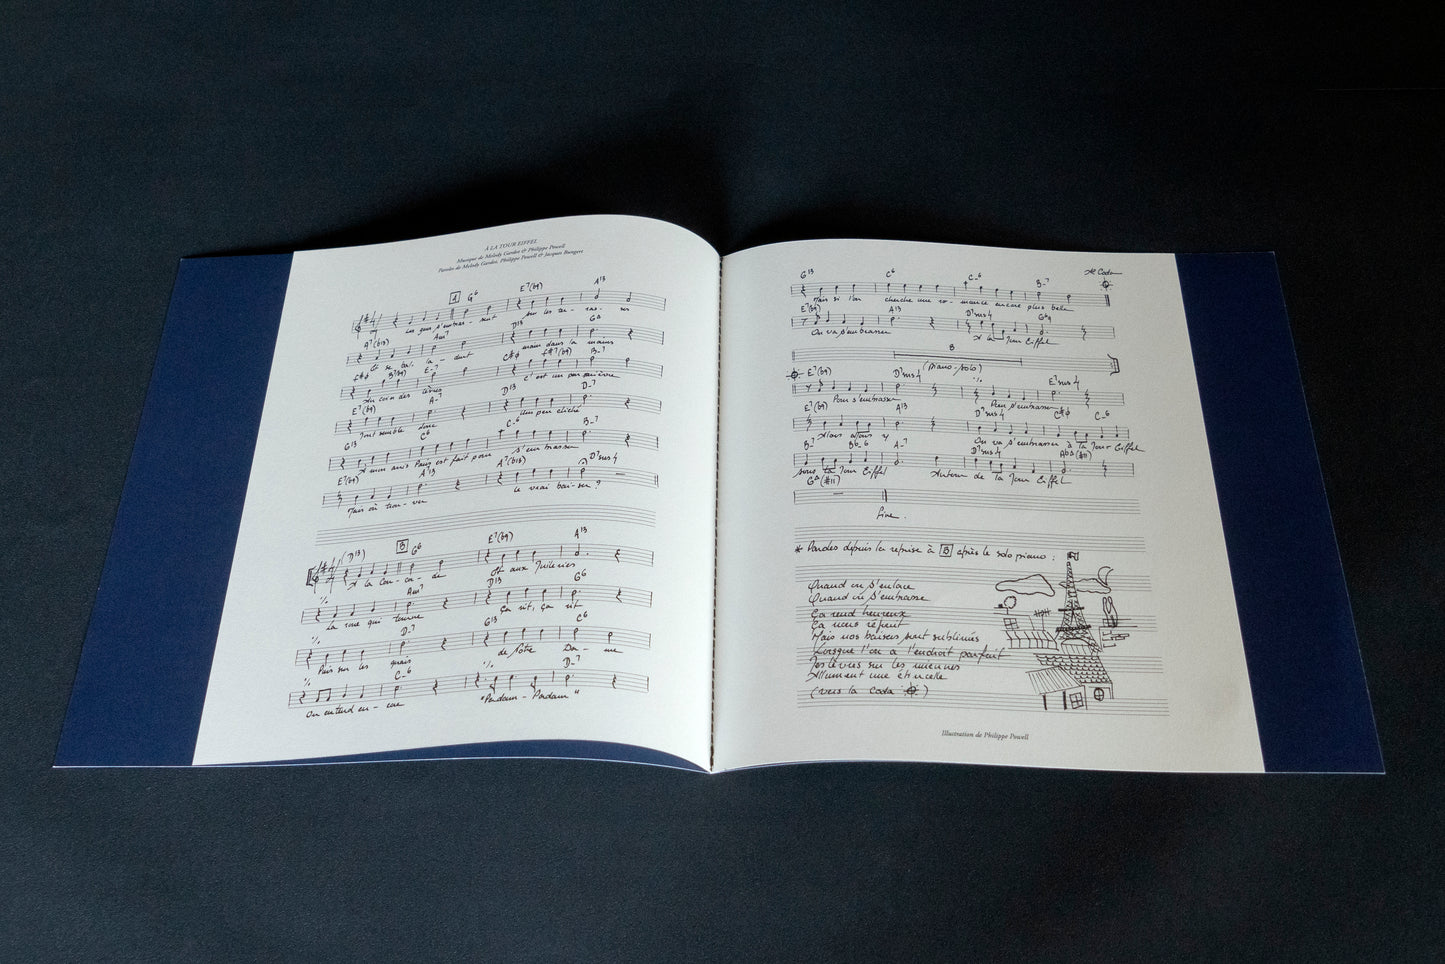 À LA TOUR EIFFEL
Musique de Melody Gardot & Philippe Powell
Paroles de Melody Gardot, Philippe Powell & Jacques
A G6 E7(b9) A13
Les gens s'embras - sent sur les ter - ras - ses
A7(b13) Am7 D13 G∆
Et se bai - la - dent main dans la mains
C#ø F#7(b9) B-7
B7(b9) E-7
Au coin des c'est un par
E7(b9) A-7 D13 D-7
Tout semble donc Un peu cliché
G13 C6 C-6 B-7
À mon avis Paris est fait pour s'embrasser
E7(b9) A13 A7(b13) D7sus4
Mais où trou - ver Le vrai bai - ser ?
(D13) B G6 E7(b9) A13
À la Con - cor - de Et aux Tuileries
% Am7 D13 G6
La roue qui tourne Ça rit, ça vit
% D-7 G13 C6
Puis sur les quais de Notre Da - me
% C-6 % D-7
On entend en - core "Padam - Padam"
G13 C6 C-6 B-7 al Coda
Mais si l'on cherche une ro - mance encore plus belle
E7(b9) A13 D7sus4 G6/9
On va s'embrasser À la Tour Eiffel
8
(piano-solo)
E7(b9) D7sus4 % E7sus4
Pour s'embrasser Pour s'embrasser
E7(b9) A13 D7sus4 C#ø C-6
Alors allons y On va s'embrasser à la Tour Eiffel
B-7 Bb-6 A-7 D7sus4 Ab∆(#11)
sous la Tour Eiffel Autour de la Tour Eiffel
G∆(#11)
Fine.
* Paroles depuis la reprise à B après le solo piano :
Quand on s'enlace
Quand on s'embrasse
Ça rend heureux
Ça nous réjouit
Mais nos baisers sont sublimés
Lorsque l'on a l'endroit parfait
Tes lèvres sur les miennes
Allument une étincelle
(vers la coda)
Illustration de Philippe Powell